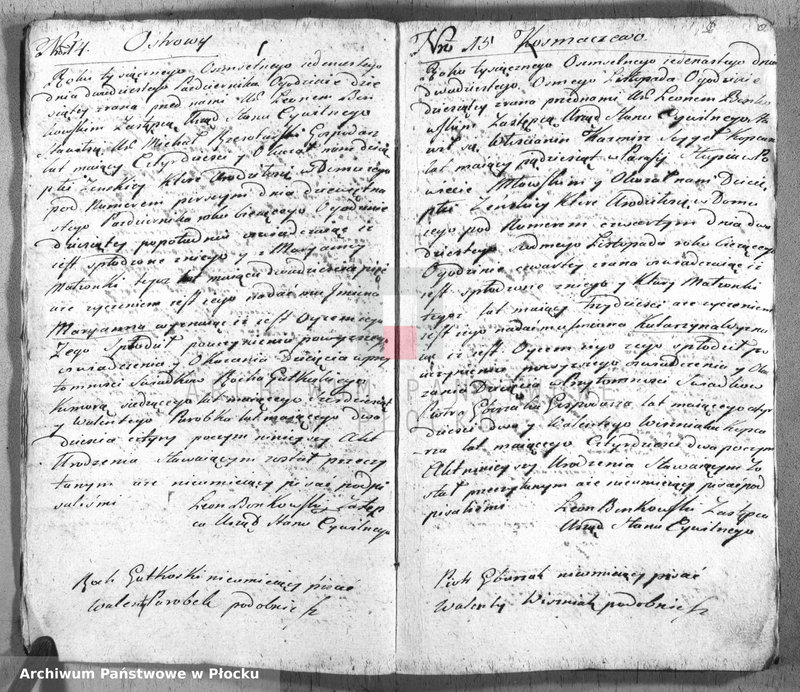 Nro 14. Ostrowy
Roku tysiącznego Osmsetnego iedenastego
dnia dwudziestego Pazdziernika Ogodzinie dzie
siątey zrana przed nami Leonem Bon
kowskim Zastępcą Urzęd Stanu Cywilnego
Stawił się Michał Gospodarz
lat maiący Czterdzieści y Okazał nam dziecię
płci Zenskiey które Urodziło się w Domu iego
pod Numerem pierszym dnia
stego Pazdziernika roku bieżącego Ogodzinie
dziesiątey popołudniu oswiadczaiąc iż
iest spłodzone z niego y z Maryanny
Małzonki tegoż lat maiącą dwadziescia pięć
ze życzeniem iest iego nadać mu Jmie
Maryanna wyznaiąc iż iest Oycem iego
y ze go Spłodził poczynieniu powyższego
oswiadczenia y Okazania Dziecięcia w przy
tomnosci Swiadkow Rocha Gutkoskiego
Komorą siedzącego lat maiącego
y Walentego Parobka lat maiącego dwa
dziescia cztery poczym ninieyszy Akt
Urodzenia Stawaiącym został przeczy
tanym ale nieumieiący pisać podpi
saliśmi Leon Bonkowski Zastęp
ca Urzęd Stanu Cywilnego
Roch Gutkoski nieumieiący pisać
Walenty Parobek podobnie
Nro 15 Kosmaczewo
Roku tysiącznego Osmsetnego iedenastego dnia
dwudziestego Osmego Listopada Ogodzinie
dziesiątey zrana przednami Leonem Bonko
wskim Zastępcą Urzęd Stanu Cywilnego
wił się Włoscianin Kazmirz
lat maiący pędziesiąt w Parafij Po
wiecie Mławskim y Okazał nam Dziecie
płci Zenskiey które Urodziło się w Domu
iego pod Numerem czwartym dnia dwu
dziestego siodmego Listopada roku bieżącego
Ogodzinie czwartey zrana oswiadczaiąc iż
iest spłodzone z niego y Klary Małzonki
tegoż lat maiącey trzydziesci ze życzeniem
iest iego nadać mu Jmie Katarzyna Wyzna
iąc iż iest Oycem iego y ze go spłodził po
uczynieniu powyższego oswiadczenia y Oka
zania Dziecięcia w Przytomnosci Swiadkow
Piotra Górniaka Gospodarza lat maiącego czter
dziesci dwa y Walentego Wisniaka
lat maiącego Czterdziesci dwa poczym
Akt ninieyszy Urodzenia Stawaiącym Zo
stał przeczytanym ale nieumieiący pisać pod
pisaliśmi Leon Bonkowski Zastępca
Urzęd Stanu Cywilnego
Piotr Górniak nieumieiący pisać
Walenty Wisniak podobnie
Archiwum Państwowe w Płocku